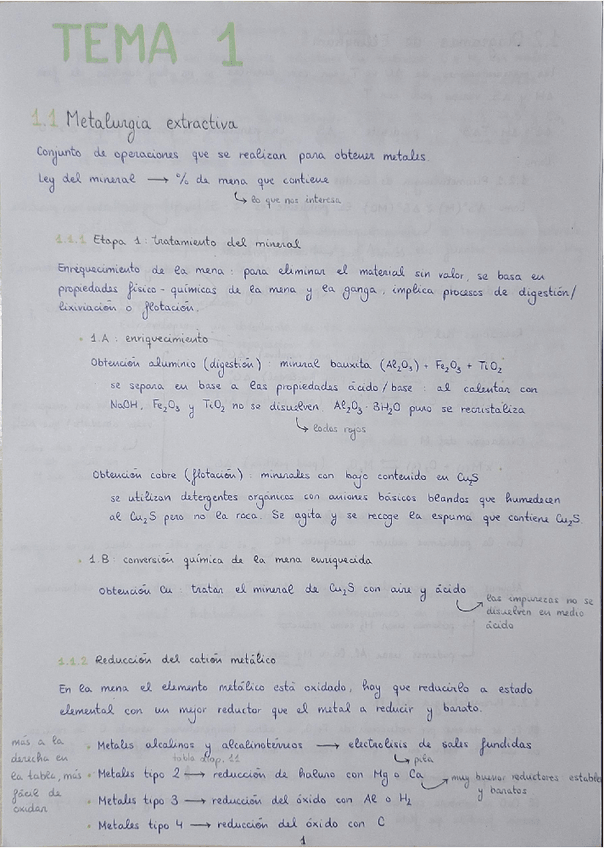 TEMA 1
1.1 Metalurgia extractiva
Conjunto de operaciones que se realizan para obtener metales.
Ley del mineral → % de mena que contiene
↳ lo que nos interesa
1.1.1 Etapa 1: tratamiento del mineral
Enrequecimiento de la mena: para eliminar el material sin valor, se basa en
propiedades físico-químicas de la mena y la ganga, implica procesos de digestión/
lixiviación o flotación.
• 1.A: enriquecimiento
Obtención aluminio (digestión): mineral bauxita (Al₂O₃) + Fe₂O₃ + TiO₂
se separa en base a las propiedades ácido/base: al calentar con
NaOH, Fe₂O₃ y TiO₂ no se disuelven Al₂O₃·3H₂O puro se recristaliza
↳ lodos rojos
Obtención cobre (flotación): minerales con bajo contenido en CuS
se utilizan detergentes orgánicos con aniones básicos blandos que humedecen
al Cu₂S pero no la roca. Se agita y se recoge la espuma que contiene Cu₂S.
• 1.B: conversión química de la mena enriquecida
Obtención Cu tratar el mineral de Cu₂S con aire y ácido
↳ las impurezas no se
disuelven en medio
ácido
1.1.2 Reducción del catión metálico
En la mena el elemento metálico está oxidado, hay que reducirlo a estado
elemental con un mejor reductor que el metal a reducir y barato.
más a la
derecha en
la tabla, más
fácil de
oxidar
• Metales alcalinos y alcalinotérreos → electrolisis de sales fundidas
↳ pila
tabla diap. 11
• Metales tipo 2 → reducción de haluro con Mg o Ca
↳ muy buenos reductores estables
y baratos
• Metales tipo 3 → reducción del óxido con Al o H₂
• Metales tipo 4 → reducción del óxido con C
1